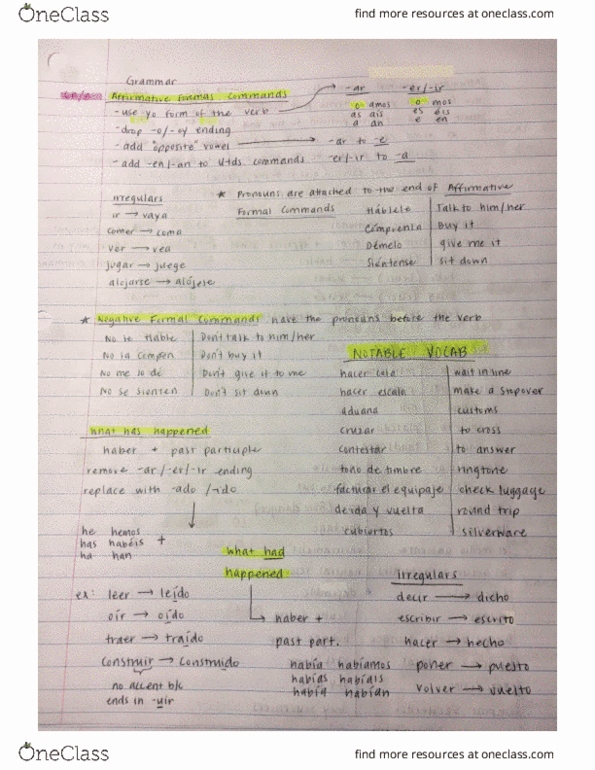 OneClass
find more resources at oneclass.com
Grammar
Affirmative Formal Commands
-ar -er/-ir
- use yo form of the verb
o amos o mos
as ais es éis
a an e en
- drop -o/-oy ending
- add "opposite" vowel -ar to -e
- add -en/-an to Uds. commands -er/-ir to -a
Irregulars
ir → vaya
comer → coma
ver → vea
jugar → juege
alojarse → alójese
* Pronouns are attached to the end of Affirmative
Formal Commands
Háblele Talk to him/her
Cómprenla Buy it
Démelo give me it
Siéntense sit down
* Negative Formal Commands have the pronouns before the verb
No le Hable Don't talk to him/her
No la compen Don't buy it
No me lo dé Don't give it to me
No se sienten Don't sit down
NOTABLE VOCAB
hacer cola wait in line
hacer escala make a stopover
aduana customs
cruzar to cross
contestar to answer
tono de timbre ringtone
facturar el equipaje check luggage
de ida y vuelta round trip
cubiertos silverware
What has happened
haber + past participle
remove -ar/-er/-ir ending
replace with -ado/-ido
he hemos
has habéis +
ha han
ex: leer → leído
oír → oído
traer → traído
construir → construido
no accent b/c
ends in -uir
what had
happened
haber +
past part.
había habíamos
habías habíais
había habían
irregulars
decir → dicho
escribir → escrito
hacer → hecho
poner → puesto
volver → vuelto
OneClass
find more resources at oneclass.com